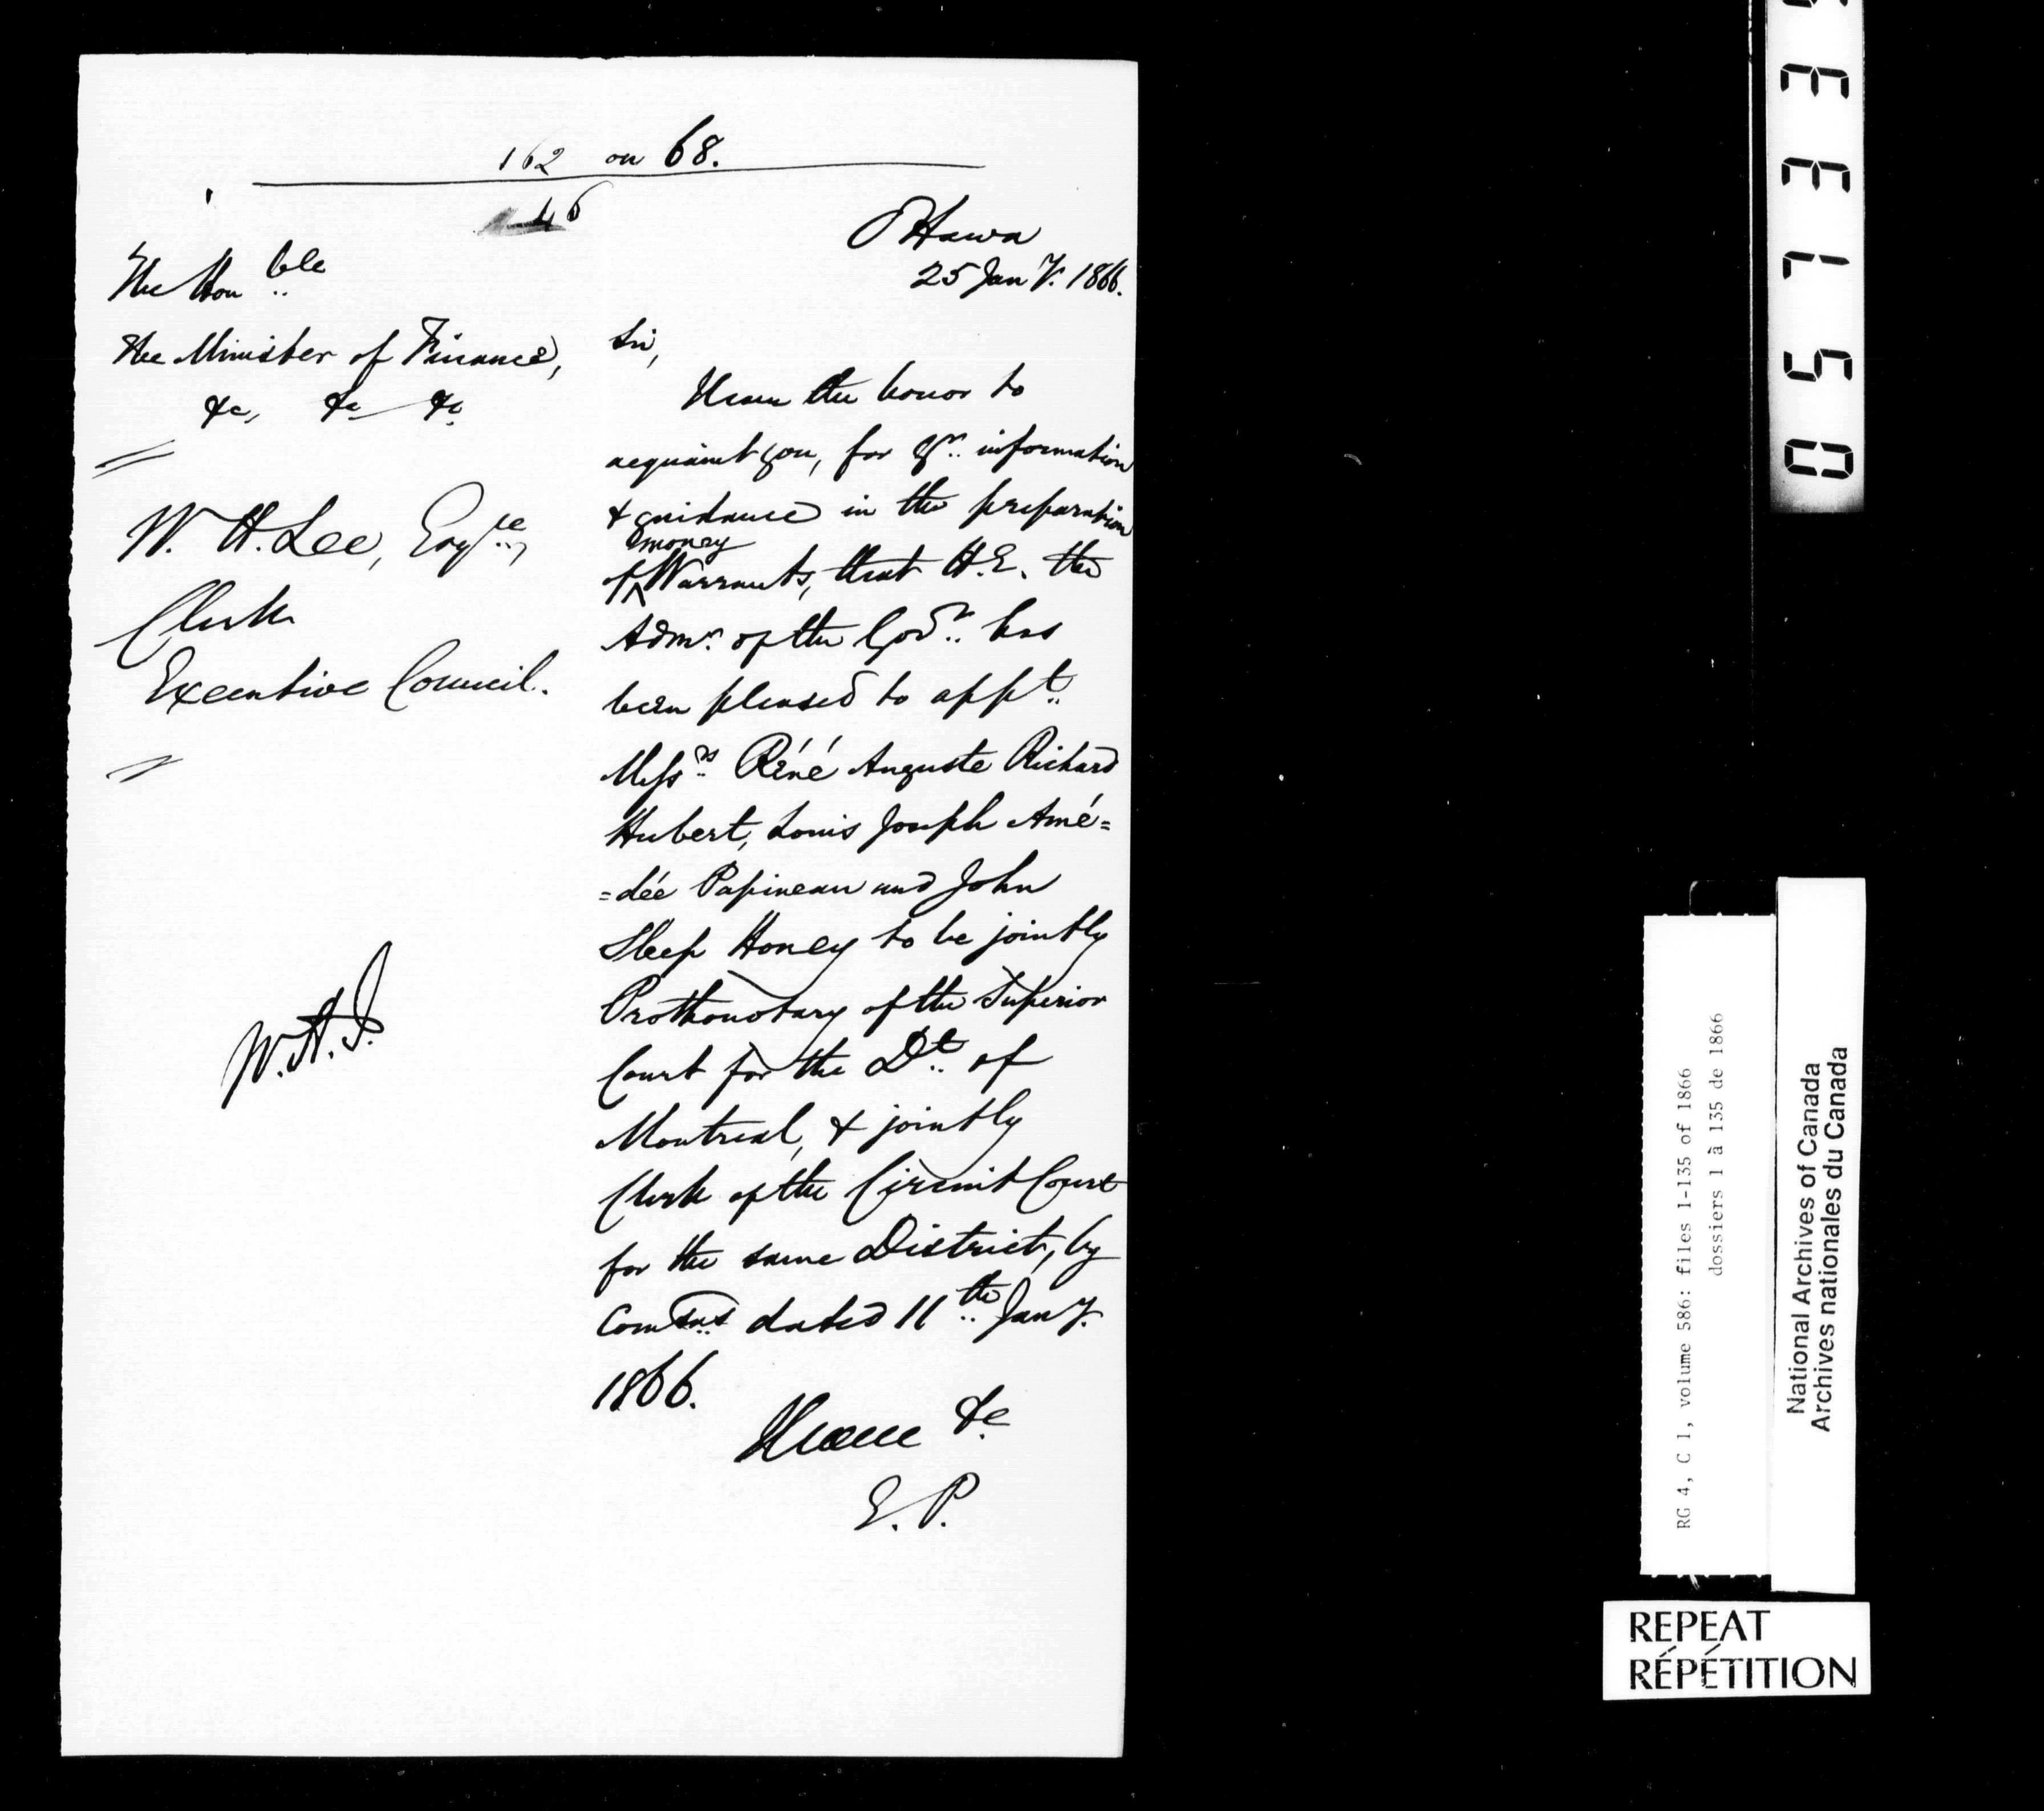 162 on 68.
46
Ottawa
25 Jany. 1866.
The Honble
The Minister of Finance,
&c, &c &c
W. H. Lee, Esqre,
Clerk
Executive Council.
W.H.J.
Sir,
I have the honor to
acquaint you, for yr information
& guidance in the preparation
of money Warrants, that H.E. the
Admr. of the Govt. has
been pleased to appt.
Messrs Réné Auguste Richard
Hubert, Louis Joseph Amé=
=dée Papineau and John
Sleep Honey to be jointly
Prothonotary of the Superior
Court for the Dt. of
Montreal, & jointly
Clerk of the Circuit Court
for the same District, by
Comsns dated 11th Jany.
1866.
I have &c
E. P.
0 5 1 3 3
RG 4, C 1, volume 586: files 1-135 of 1866
dossiers 1 à 135 de 1866
National Archives of Canada
Archives nationales du Canada
REPEAT
RÉPÉTITION